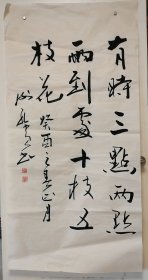 有時三點兩點
雨到處十枝五
枝花 癸酉之春正月